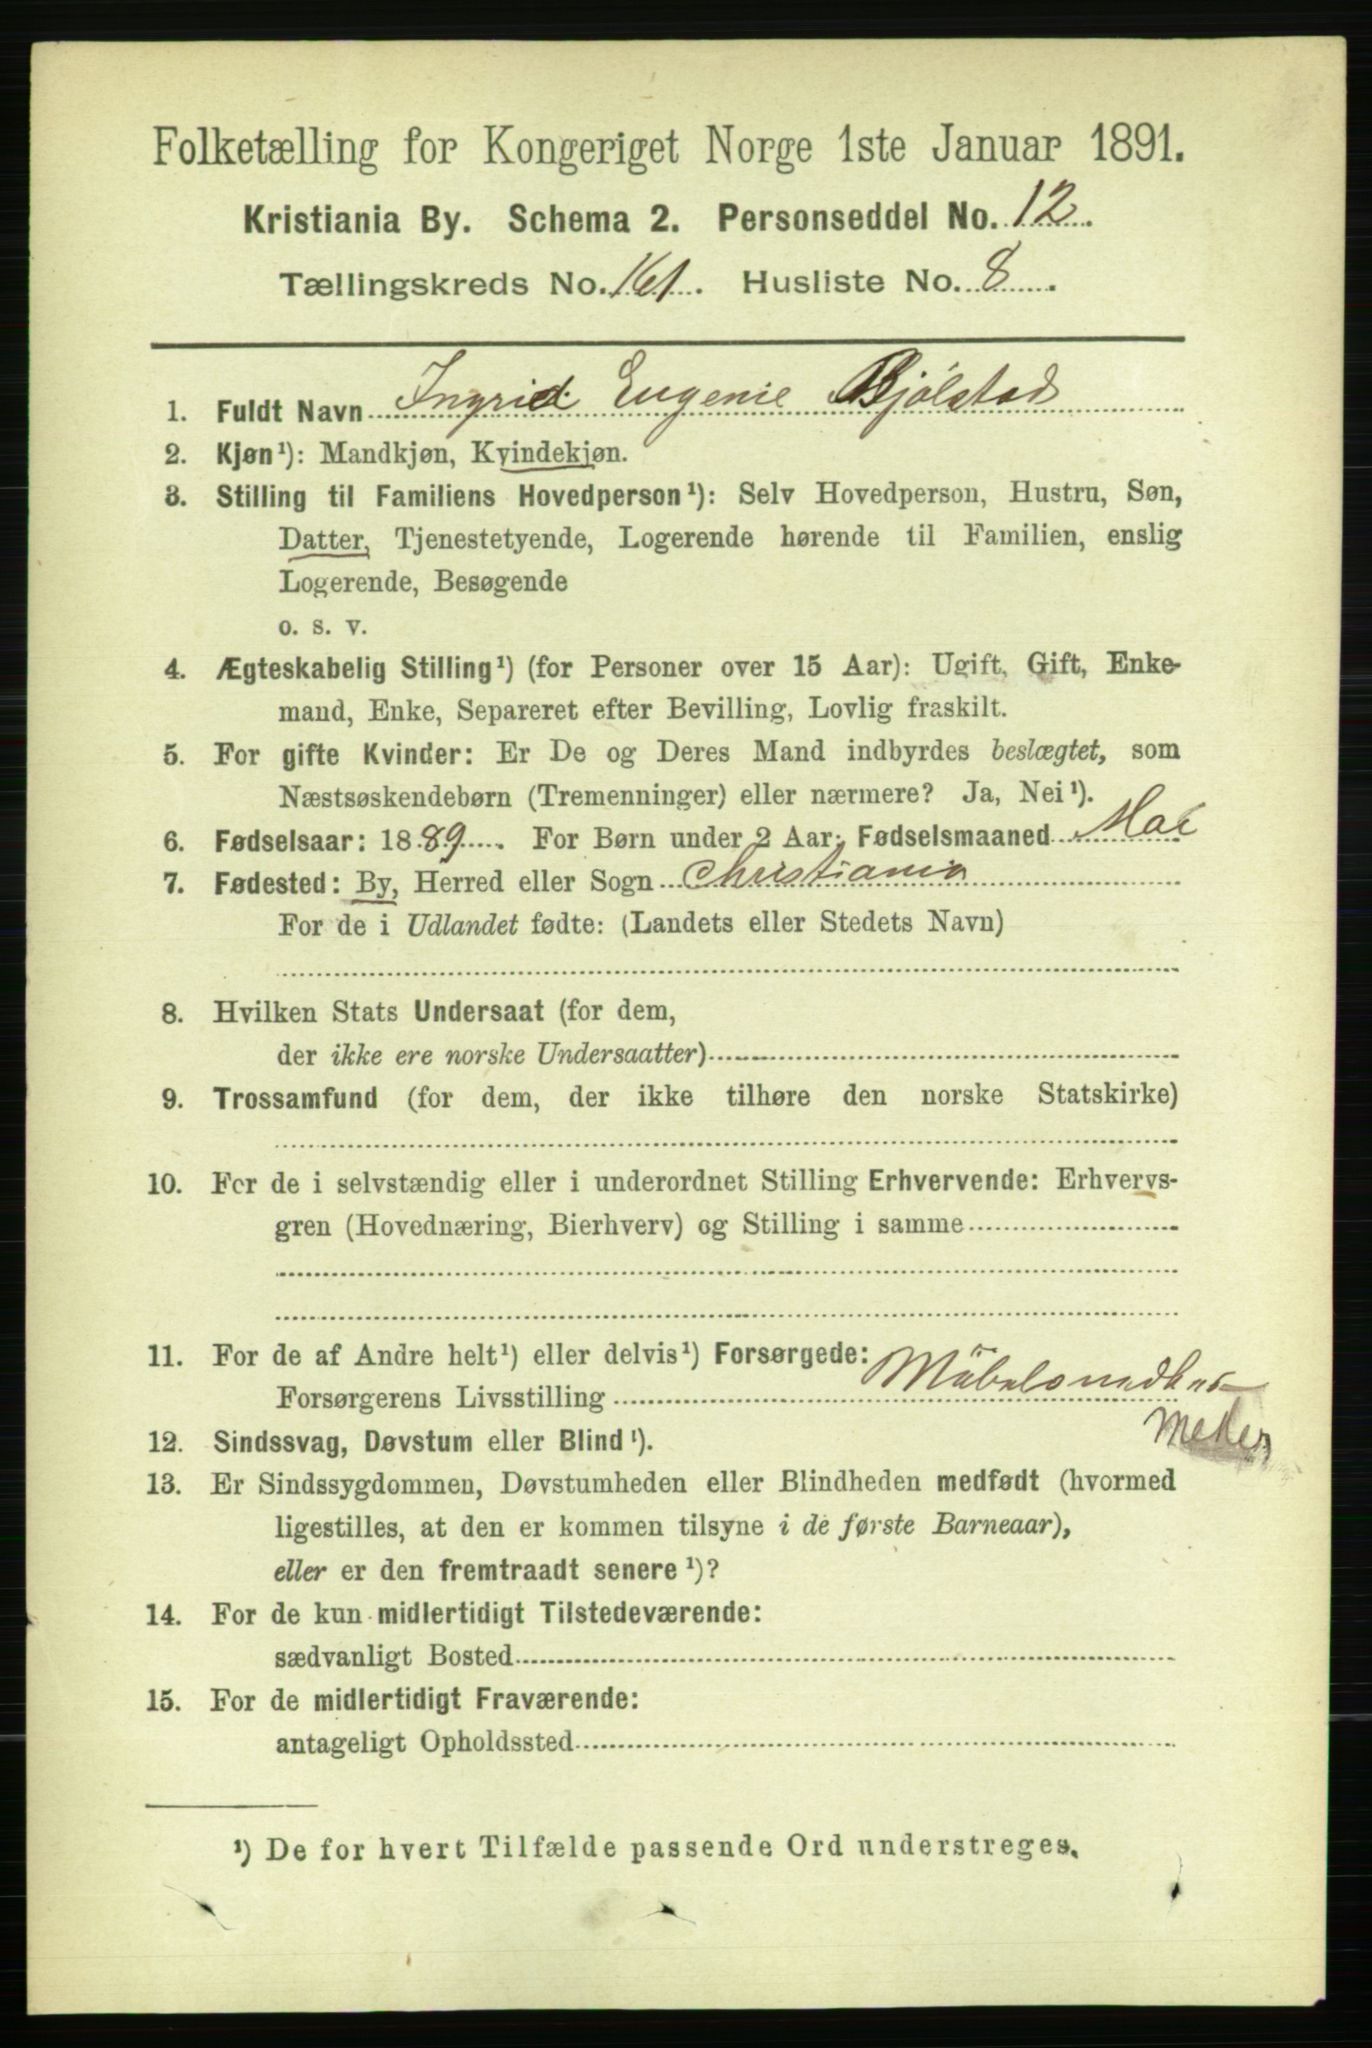 Folketælling for Kongeriget Norge 1ste Januar 1891.
Kristiania By. Schema 2. Personseddel No. 12.
Tællingskreds No. 161. Husliste No. 8.
1. Fuldt Navn Ingrid Eugenie Bjölstad
2. Kjøn¹): Mandkjøn, Kvindekjøn.
3. Stilling til Familiens Hovedperson¹): Selv Hovedperson, Hustru, Søn,
Datter, Tjenestetyende, Logerende hørende til Familien, enslig
Logerende, Besøgende
o. s. v.
4. Ægteskabelig Stilling¹) (for Personer over 15 Aar): Ugift, Gift, Enke-
mand, Enke, Separeret efter Bevilling, Lovlig fraskilt.
5. For gifte Kvinder: Er De og Deres Mand indbyrdes beslægtet, som
Næstsøskendebørn (Tremenninger) eller nærmere? Ja, Nei¹).
6. Fødselsaar: 1889. For Børn under 2 Aar: Fødselsmaaned Mai
7. Fødested: By, Herred eller Sogn Christiania
For de i Udlandet fødte: (Landets eller Stedets Navn)
8. Hvilken Stats Undersaat (for dem,
der ikke ere norske Undersaatter)
9. Trossamfund (for dem, der ikke tilhøre den norske Statskirke)
10. For de i selvstændig eller i underordnet Stilling Erhvervende: Erhvervs-
gren (Hovednæring, Bierhverv) og Stilling i samme
11. For de af Andre helt¹) eller delvis¹) Forsørgede:
Forsørgerens Livsstilling Möbelsnedker
12. Sindssvag, Døvstum eller Blind¹).
13. Er Sindssygdommen, Døvstumheden eller Blindheden medfødt (hvormed
ligestilles, at den er kommen tilsyne i de første Barneaar),
eller er den fremtraadt senere¹)?
14. For de kun midlertidigt Tilstedeværende:
sædvanligt Bosted
15. For de midlertidigt Fraværende:
antageligt Opholdssted
¹) De for hvert Tilfælde passende Ord understreges.